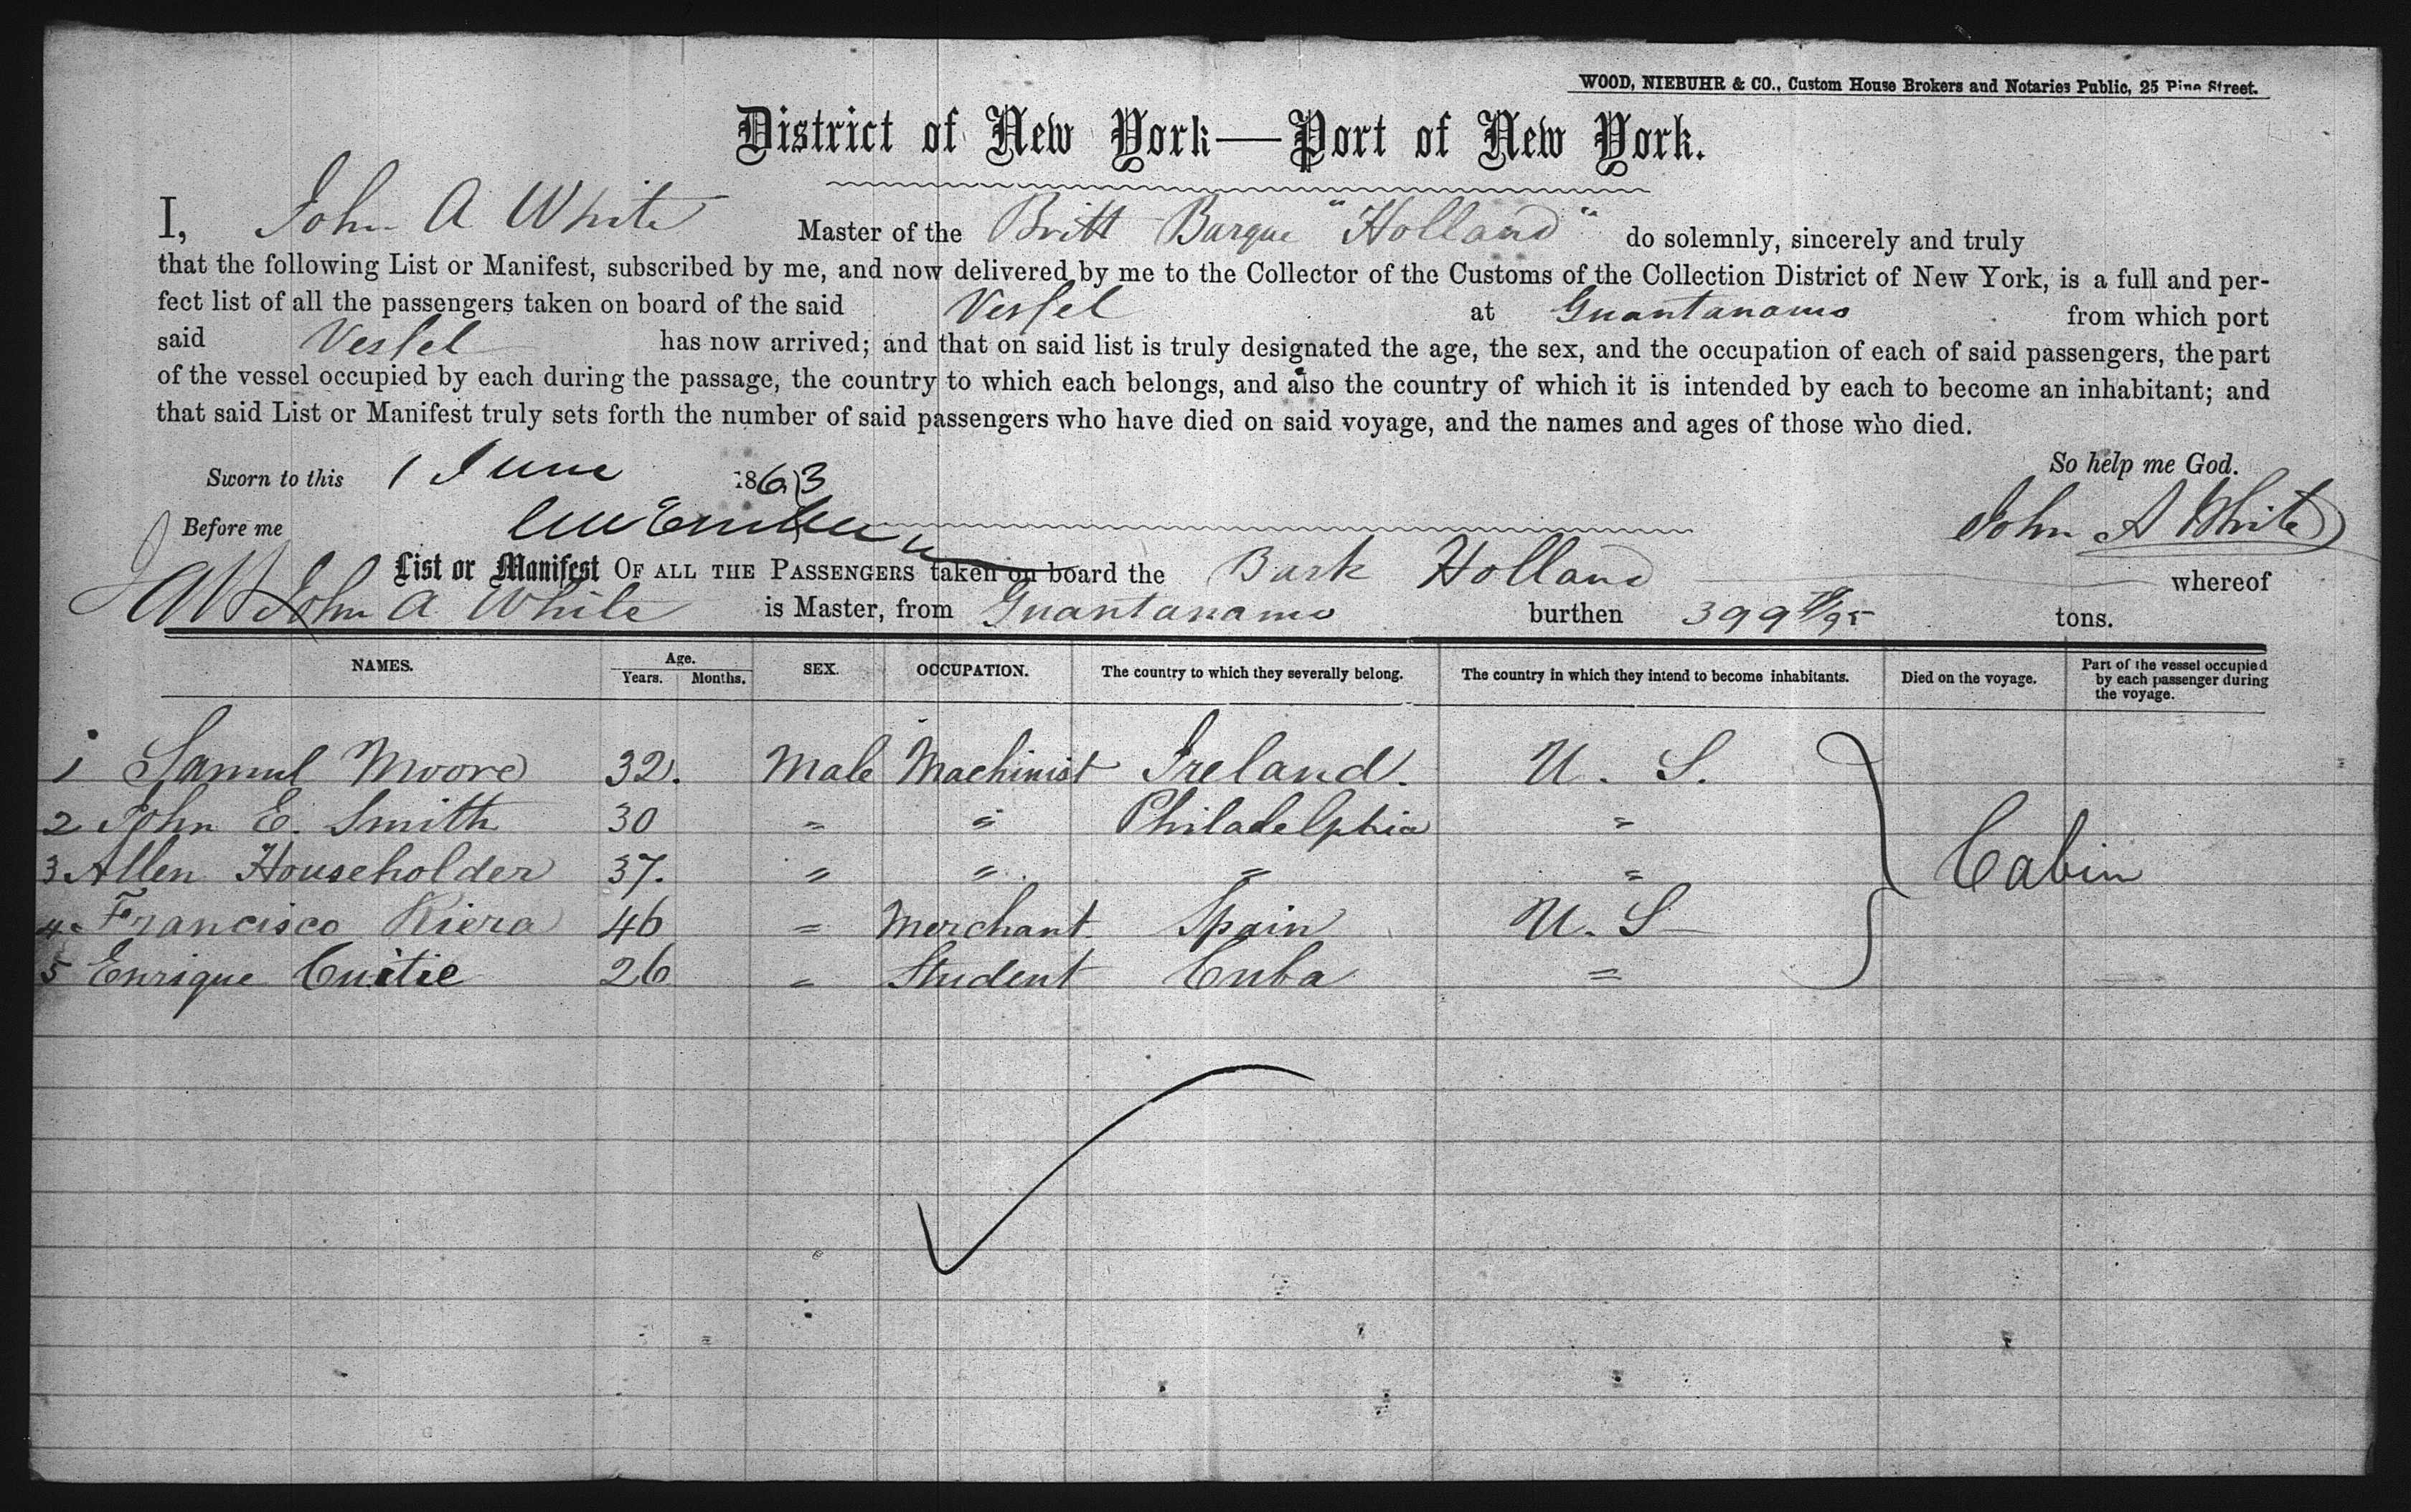 WOOD, NIEBUHR & CO., Custom House Brokers and Notaries Public, 25 Pine Street.
District of New York—Port of New York.
I, John A White Master of the Britt Barque "Holland" do solemnly, sincerely and truly
that the following List or Manifest, subscribed by me, and now delivered by me to the Collector of the Customs of the Collection District of New York, is a full and per-
fect list of all the passengers taken on board of the said Vessel at Guantanamo from which port
said Vessel has now arrived; and that on said list is truly designated the age, the sex, and the occupation of each of said passengers, the part
of the vessel occupied by each during the passage, the country to which each belongs, and also the country of which it is intended by each to become an inhabitant; and
that said List or Manifest truly sets forth the number of said passengers who have died on said voyage, and the names and ages of those who died.
So help me God.
Sworn to this 1 June 1863
John A White
Before me
List or Manifest OF ALL THE PASSENGERS taken on board the Bark Holland whereof
John A. White is Master, from Guantanamo burthen 399 tons.
NAMES. Age. Years. Months. SEX. OCCUPATION. The country to which they severally belong. The country in which they intend to become inhabitants. Died on the voyage. Part of the vessel occupied by each passenger during the voyage.
1 Samul Moore 32. Male Machinist Ireland. U. S.
2 John E. Smith 30 " " Philadelphia "
3 Allen Householder 37. " " " "
Cabin
4. Francisco Riera 46 " Merchant Spain U. S
5 Enrique Cuitie 26 " Student Cuba "